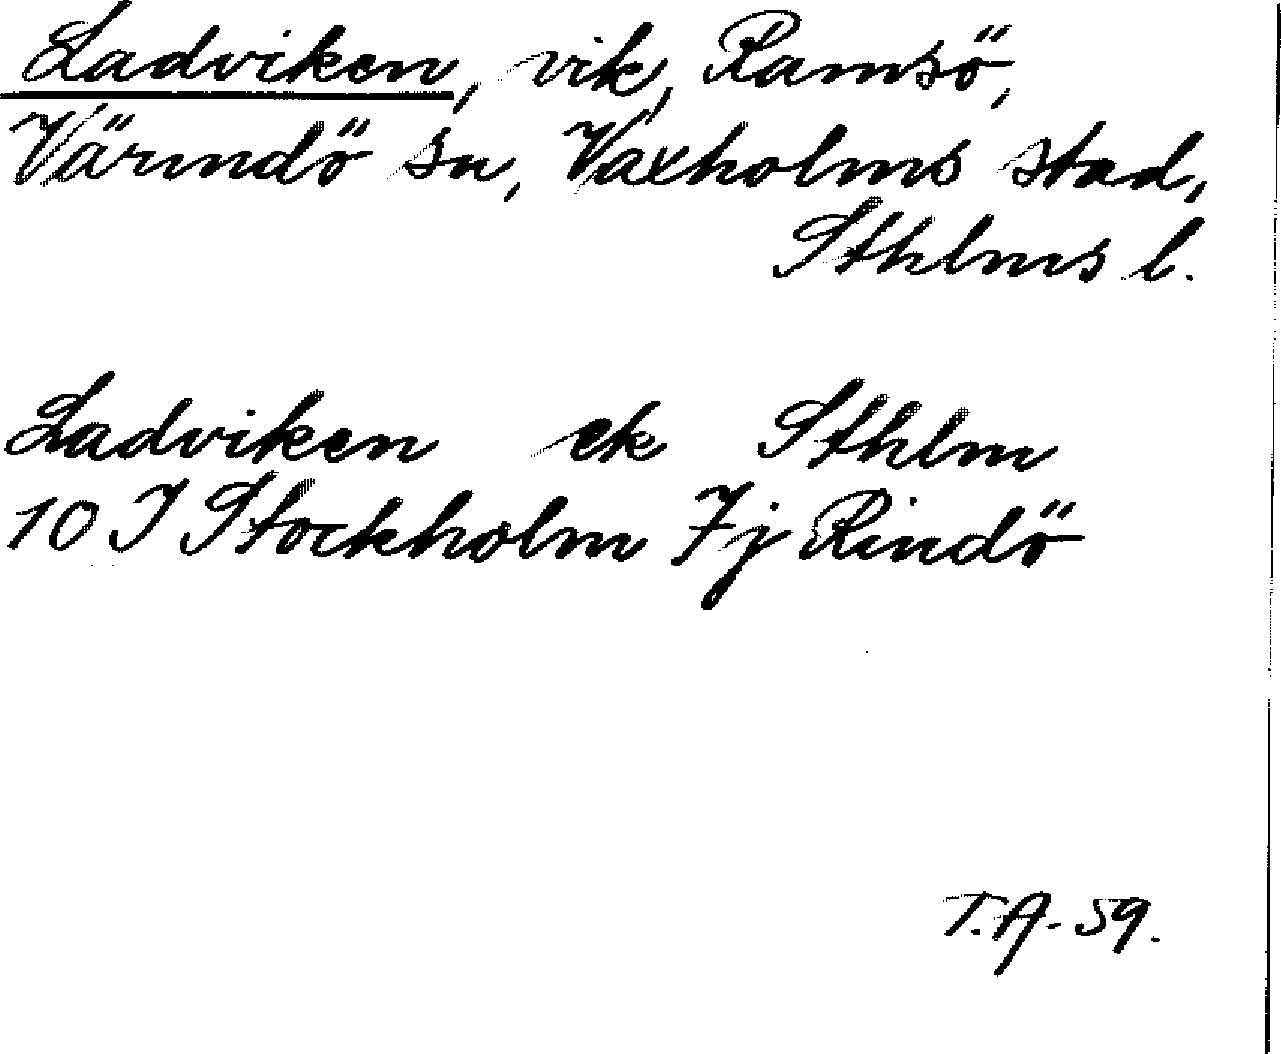 Ladviken, vik, Ramsö,
Värmdö sn, Vaxholms stad,
Sthlms l.
Ladviken ek Sthlm
10 I Stockholm 7j Rindö
T.A-59.